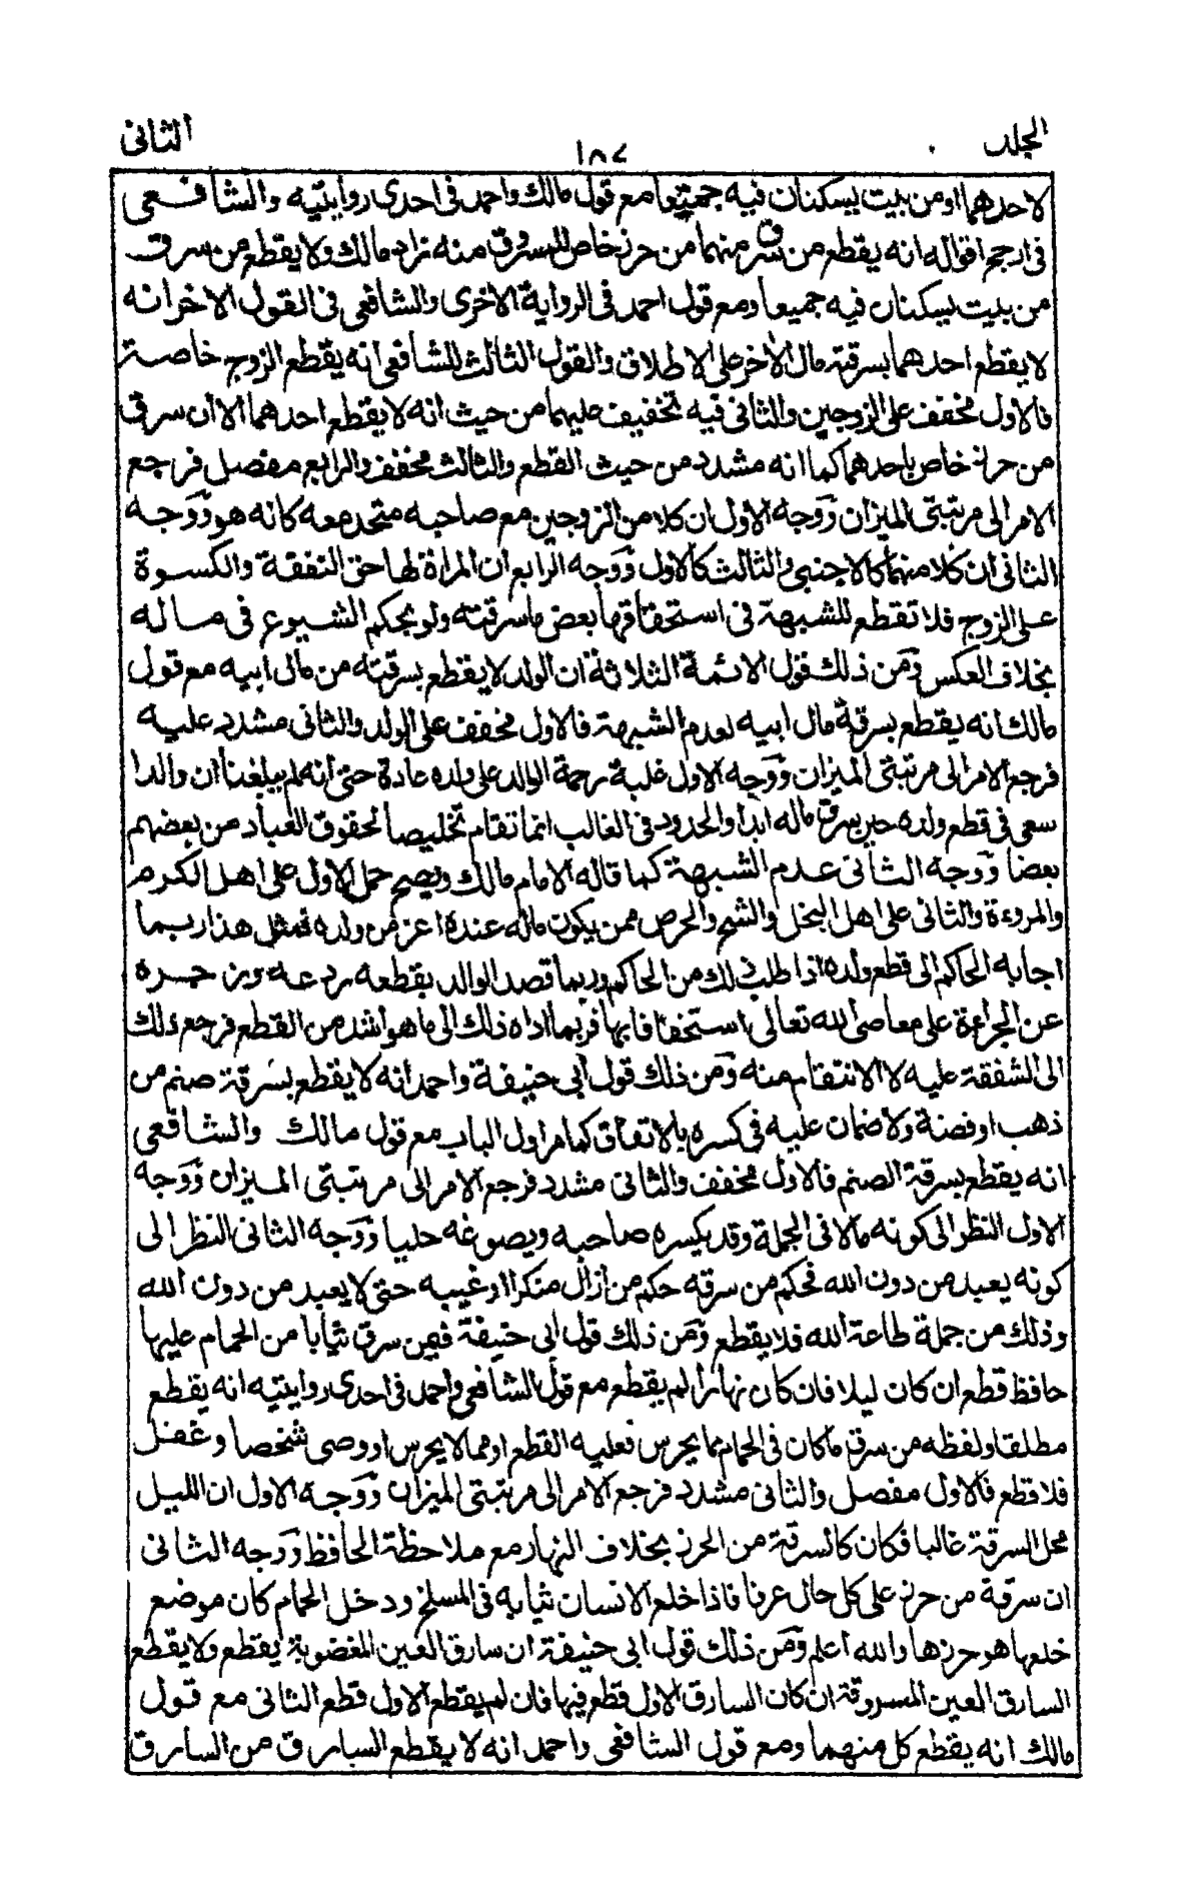 المجلد ١٨٧ الثانى
لاحدهما او من بيت يسكنان فيه جميعا مع قول مالك واحمد فى احدى روايتيه والشافعى
فى ارجح اقواله انه يقطع من سرق منهما من حرز خاص للمسروق منه زاد مالك ولا يقطع من سرق
من بيت يسكنان فيه جميعا ومع قول احمد فى الرواية الاخرى والشافعى فى القول الاخر انه
لا يقطع احدهما بسرقته مال الاخر على الاطلاق والقول الثالث للشافعى انه يقطع الزوج خاصة
فالاول مخفف على الزوجين والثانى فيه تخفيف عليهما من حيث انه لا يقطع احدهما الا ان سرق
من حرز خاص باحدهما كما انه مشدد من حيث القطع والثالث مخفف والرابع مفصل فرجع
الامر الى مرتبتى الميزان ووجه الاول ان كلا من الزوجين مع صاحبه متحد معه كانه هو ووجه
الثانى ان كلا منهما كالاجنبى والثالث كالاول ووجه الرابع ان المراة لها حق النفقة والكسوة
على الزوج فلا تقطع للشبهة فى استحقاقها بعض ما سرقته ولو بحكم الشيوع فى ماله
بخلاف العكس ومن ذلك قول الائمة الثلاثة ان الولد لا يقطع بسرقته من مال ابيه مع قول
مالك انه يقطع بسرقة مال ابيه لعدم الشبهة فالاول مخفف على الولد والثانى مشدد عليه
فرجع الامر الى مرتبتى الميزان ووجه الاول غلبة رحمة الوالد على ولده عادة حتى انه لم يبلغنا ان والدا
سعى فى قطع ولده حين سرق ماله ابدا والحدود فى الغالب انما تقام تخليصا لحقوق العباد من بعضهم
بعضا ووجه الثانى عدم الشبهة كما قاله الامام مالك ويصح حمل الاول على اهل الكرم
والمروءة والثانى على اهل البخل والشح والحرص ممن يكون ماله عنده اعز من ولده فمثل هذا ربما
اجابه الحاكم الى قطع ولده اذا طلب ذلك من الحاكم وربما قصد الوالد بقطعه ردعه وزجره
عن الجراءة على معاصى الله تعالى استخفافا بها فربما اداه ذلك الى ما هو اشد من القطع فرجع ذلك
الى الشفقة عليه لا الانتقام منه ومن ذلك قول ابى حنيفة واحمد انه لا يقطع بسرقة صنم من
ذهب او فضة ولا ضمان عليه فى كسره بالاتفاق كما مر اول الباب مع قول مالك والشافعى
انه يقطع بسرقة الصنم فالاول مخفف والثانى مشدد فرجع الامر الى مرتبتى الميزان ووجه
الاول النظر الى كونه مالا فى الجملة وقد يكسره صاحبه ويصوغه حليا ووجه الثانى النظر الى
كونه يعبد من دون الله فحكم من سرقه حكم من ازال منكرا او غيبه حتى لا يعبد من دون الله
وذلك من جملة طاعة الله فلا يقطع ومن ذلك قول ابى حنيفة فيمن سرق ثيابا من الحمام عليها
حافظ قطع ان كان ليلا فان كان نهارا لم يقطع مع قول الشافعى واحمد فى احدى روايتيه انه يقطع
مطلقا ولفظه من سرق ما كان فى الحمام مما يحرس فعليه القطع او مما لا يحرس او وصى شخصا وغفل
فلا قطع فالاول مفصل والثانى مشدد فرجع الامر الى مرتبتى الميزان ووجه الاول ان الليل
محل السرقة غالبا فكان كالسرقة من الحرز بخلاف النهار مع ملاحظة الحافظ ووجه الثانى
ان سرقة من حرز على كل حال عرفا فاذا خلع الانسان ثيابه فى المسلخ ودخل الحمام كان موضع
خلعها هو حرزها والله اعلم ومن ذلك قول ابى حنيفة ان سارق العين المغصوبة يقطع ولا يقطع
السارق العين المسروقة ان كان السارق الاول قطع فيها فان لم يقطع الاول قطع الثانى مع قول
مالك انه يقطع كل منهما ومع قول الشافعى واحمد انه لا يقطع السارق من السارق